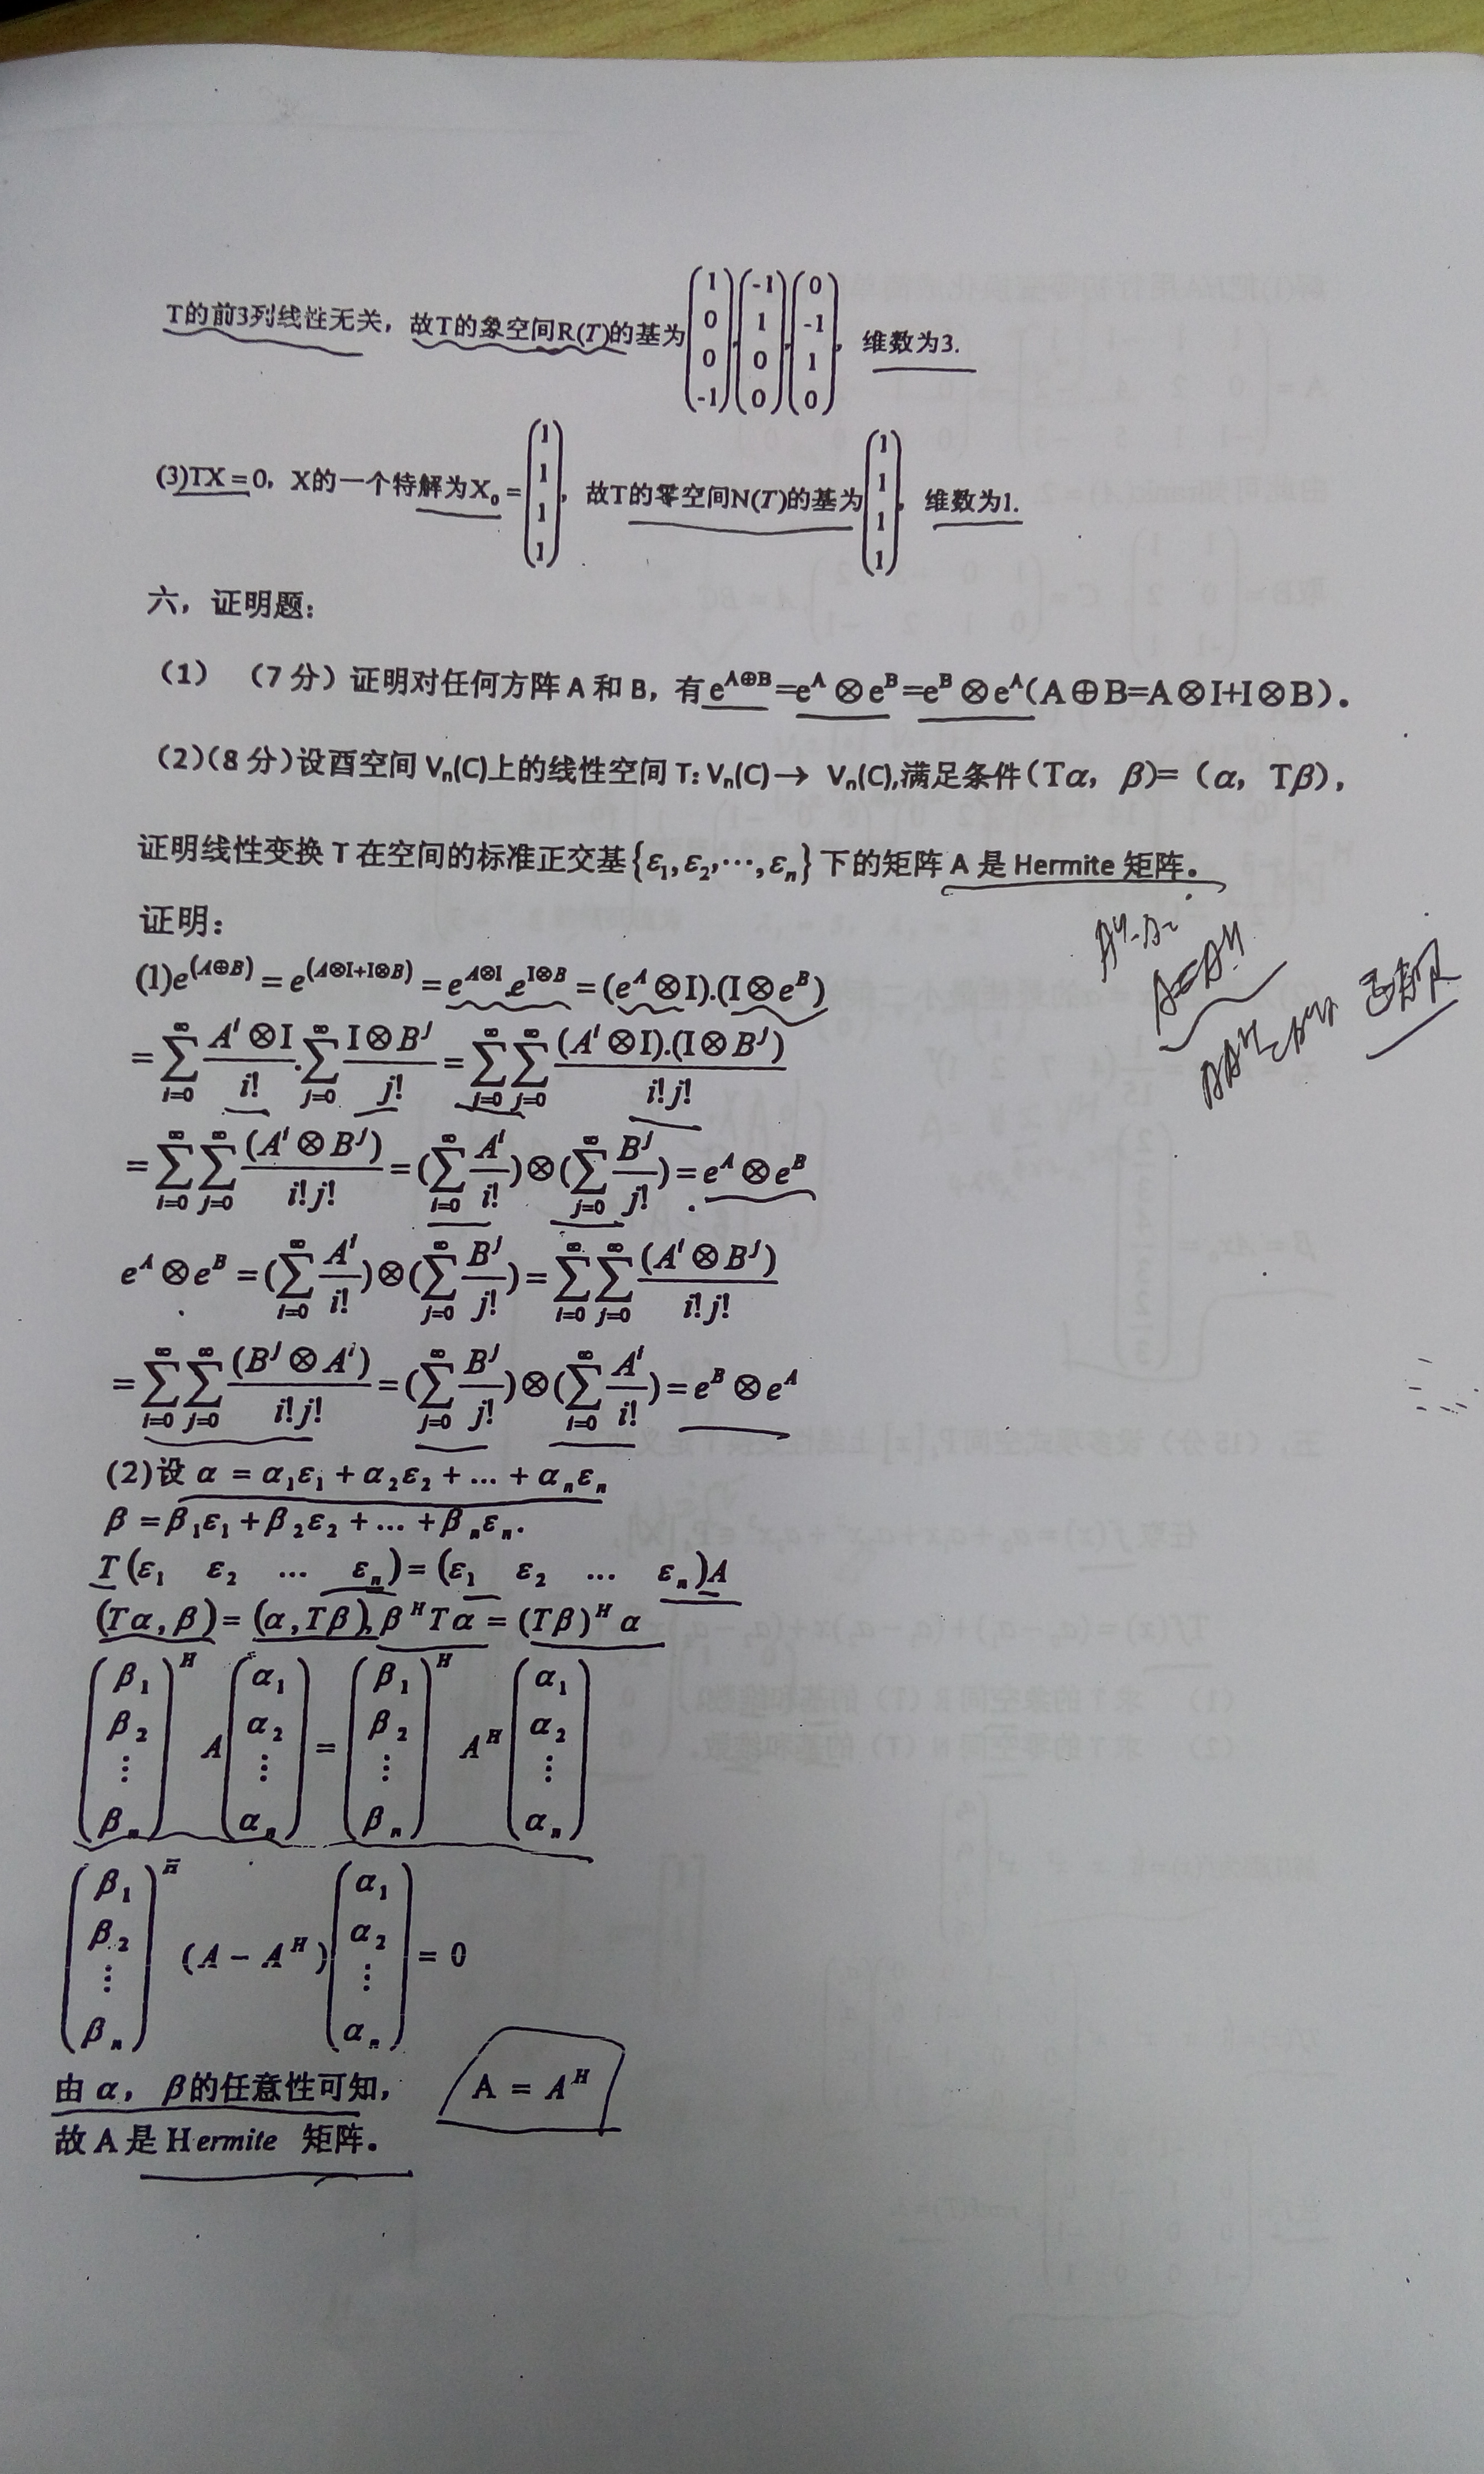 T的前3列线性无关，故T的象空间R(T)的基为 (1 0 0 -1), (-1 1 0 0), (0 -1 1 0), 维数为3.
(3)TX = 0, X的一个特解为X₀ = (1 1 1 1), 故T的零空间N(T)的基为 (1 1 1 1), 维数为1.
六，证明题：
（1） （7 分）证明对任何方阵 A 和 B，有 e^{A⊕B}=e^A ⊗ e^B=e^B ⊗ e^A(A⊕B=A⊗I+I⊗B)。
（2）（8 分）设酉空间 Vₙ(C)上的线性空间 T: Vₙ(C)→ Vₙ(C),满足条件（Tα, β)=（α, Tβ)，
证明线性变换 T 在空间的标准正交基{ε₁,ε₂,⋯,εₙ}下的矩阵 A 是 Hermite 矩阵。
证明：
A=A^H
(1)e^{(A⊕B)} = e^{(A⊗I+I⊗B)} = e^{A⊗I}.e^{I⊗B} = (e^A ⊗I).(I⊗e^B)
= ∑_{i=0}^∞ (A^i ⊗I)/i! . ∑_{j=0}^∞ (I⊗B^j)/j! = ∑_{i=0}^∞ ∑_{j=0}^∞ ((A^i ⊗I).(I⊗B^j))/(i!j!)
= ∑_{i=0}^∞ ∑_{j=0}^∞ (A^i ⊗B^j)/(i!j!) = (∑_{i=0}^∞ A^i/i!)⊗(∑_{j=0}^∞ B^j/j!) = e^A ⊗e^B
e^A ⊗e^B = (∑_{i=0}^∞ A^i/i!)⊗(∑_{j=0}^∞ B^j/j!) = ∑_{i=0}^∞ ∑_{j=0}^∞ (A^i ⊗B^j)/(i!j!)
= ∑_{i=0}^∞ ∑_{j=0}^∞ (B^j ⊗A^i)/(i!j!) = (∑_{j=0}^∞ B^j/j!)⊗(∑_{i=0}^∞ A^i/i!) = e^B ⊗e^A
(2)设 α = α₁ε₁ + α₂ε₂ + ... + αₙεₙ
β = β₁ε₁ + β₂ε₂ + ... + βₙεₙ.
T(ε₁ ε₂ ... εₙ) = (ε₁ ε₂ ... εₙ)A
(Tα, β) = (α, Tβ), β^H Tα = (Tβ)^H α
(β₁ β₂ ⋮ βₙ)^H A (α₁ α₂ ⋮ αₙ) = (β₁ β₂ ⋮ βₙ)^H A^H (α₁ α₂ ⋮ αₙ)
(β₁ β₂ ⋮ βₙ)^H (A − A^H) (α₁ α₂ ⋮ αₙ) = 0
由 α, β的任意性可知, A = A^H
故 A 是 Hermite 矩阵。